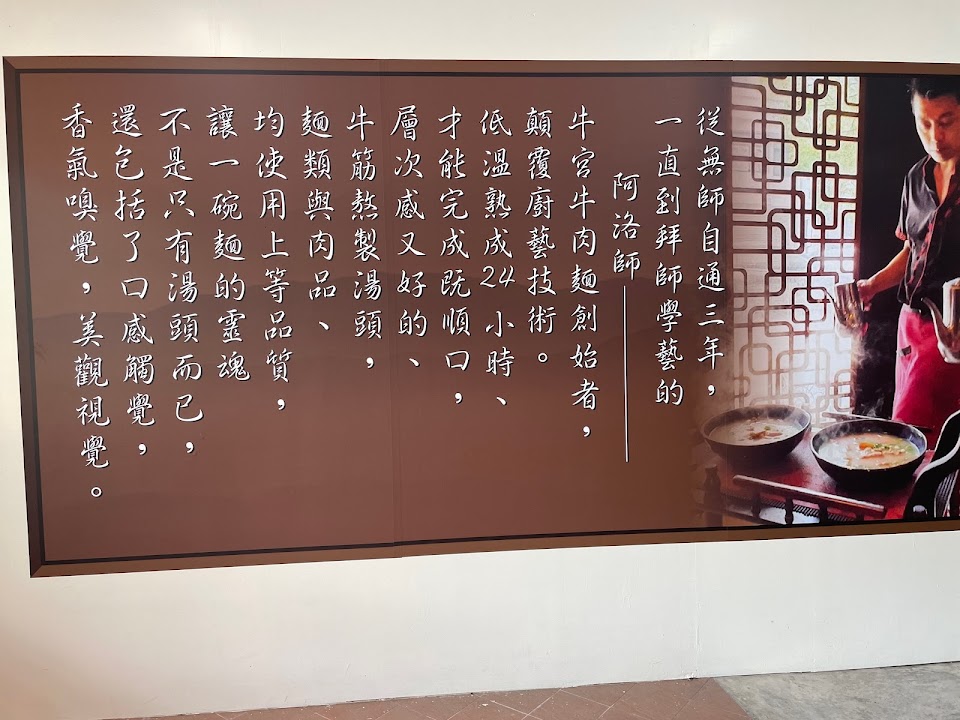 從無師自通三年，
一直到拜師學藝的
阿洛師——
牛宮牛肉麵創始者，
顛覆廚藝技術。
低溫熟成24小時、
才能完成既順口，
層次感又好的、
牛筋熬製湯頭，
麵類與肉品、
均使用上等品質，
讓一碗麵的靈魂
不是只有湯頭而已，
還包括了口感觸覺，
香氣嗅覺，美觀視覺。